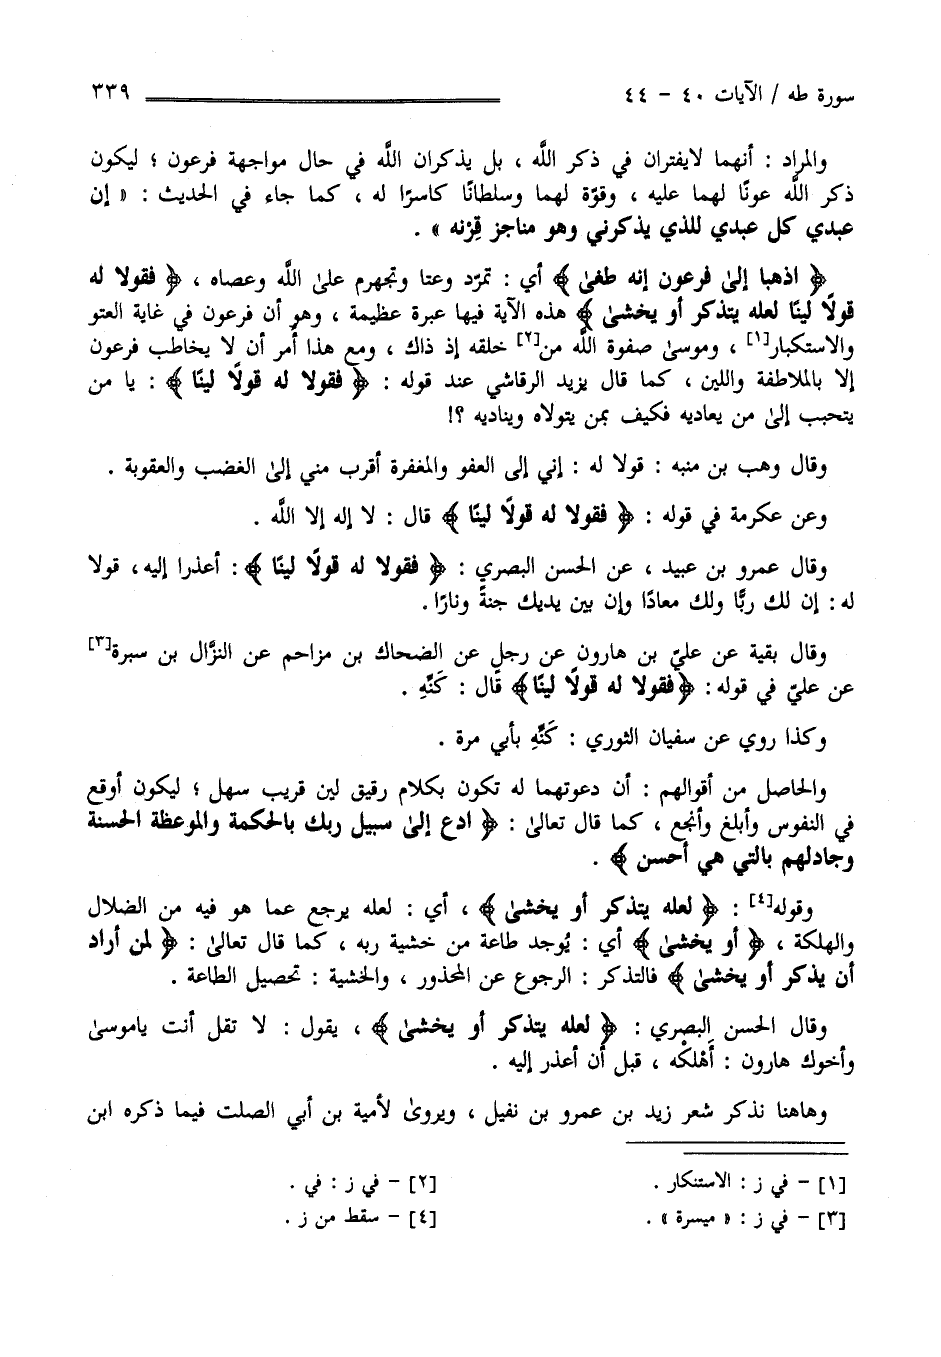 سورة طه / الآيات ٤٠ - ٤٤
٣٣٩
والمراد : أنهما لايفتران في ذكر اللَّه ، بل يذكران اللَّه في حال مواجهة فرعون ؛ ليكون
ذكر اللَّه عونًا لهما عليه ، وقوّة لهما وسلطانًا كاسرًا له ، كما جاء في الحديث : « إن
عبدي كل عبدي للذي يذكرني وهو مناجز قِرْنه » .
﴿ اذهبا إلىٰ فرعون إنه طغىٰ ﴾ أي : تمرّد وعتا وتجهرم علىٰ اللَّه وعصاه ، ﴿ فقولا له
قولًا لينًا لعله يتذكر أو يخشىٰ ﴾ هذه الآية فيها عبرة عظيمة ، وهو أن فرعون في غاية العتو
والاستكبار[١] ، وموسىٰ صفوة اللَّه من[٢] خلقه إذ ذاك ، ومع هذا أُمر أن لا يخاطب فرعون
إلا بالملاطفة واللين ، كما قال يزيد الرقاشي عند قوله : ﴿ فقولا له قولًا لينًا ﴾ : يا من
يتحبب إلىٰ من يعاديه فكيف بمن يتولاه ويناديه ؟!
وقال وهب بن منبه : قولا له : إني إلى العفو والمغفرة أقرب مني إلىٰ الغضب والعقوبة .
وعن عكرمة في قوله : ﴿ فقولا له قولًا لينًا ﴾ قال : لا إله إلا اللَّه .
وقال عمرو بن عبيد ، عن الحسن البصري : ﴿ فقولا له قولًا لينًا ﴾ : أعذرا إليه، قولا
له : إن لك ربًّا ولك معادًا وإن بين يديك جنةً ونارًا .
وقال بقية عن عليّ بن هارون عن رجل عن الضحاك بن مزاحم عن النزَّال بن سبرة[٣]
عن عليّ في قوله : ﴿فقولا له قولًا لينًا﴾ قال : كَنِّهِ .
وكذا روي عن سفيان الثوري : كَنِّهِ بأبي مرة .
والحاصل من أقوالهم : أن دعوتهما له تكون بكلام رقيق لين قريب سهل ؛ ليكون أوقع
في النفوس وأبلغ وأنجع ، كما قال تعالىٰ : ﴿ ادع إلىٰ سبيل ربك بالحكمة والموعظة الحسنة
وجادلهم بالتي هي أحسن ﴾ .
وقوله[٤] : ﴿ لعله يتذكر أو يخشىٰ ﴾ ، أي : لعله يرجع عما هو فيه من الضلال
والهلكة ، ﴿ أو يخشىٰ ﴾ أي : يُوجد طاعة من خشية ربه ، كما قال تعالىٰ : ﴿ لمن أراد
أن يذكر أو يخشىٰ ﴾ فالتذكر : الرجوع عن المحذور ، والخشية : تحصيل الطاعة .
وقال الحسن البصري : ﴿ لعله يتذكر أو يخشىٰ ﴾ ، يقول : لا تقل أنت ياموسىٰ
وأخوك هارون : أَهْلِكْه ، قبل أن أعذر إليه .
وهاهنا نذكر شعر زيد بن عمرو بن نفيل ، ويروىٰ لأمية بن أبي الصلت فيما ذكره ابن
[١] - في ز : الاستنكار .
[٢] - في ز : في .
[٣] - في ز : « ميسرة » .
[٤] - سقط من ز .